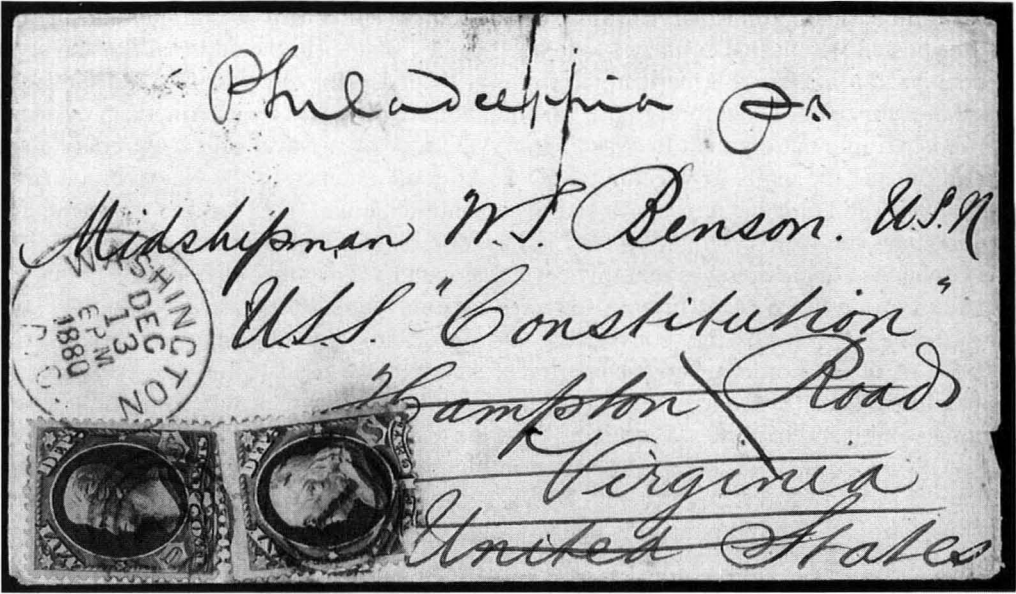 Philadelphia Pa
Midshipman W. S. Benson. U.S.N
U.S.S. "Constitution"
Hampton Roads
Virginia
United States
WASHINGTON
DEC
13
6PM
1880
D.C.